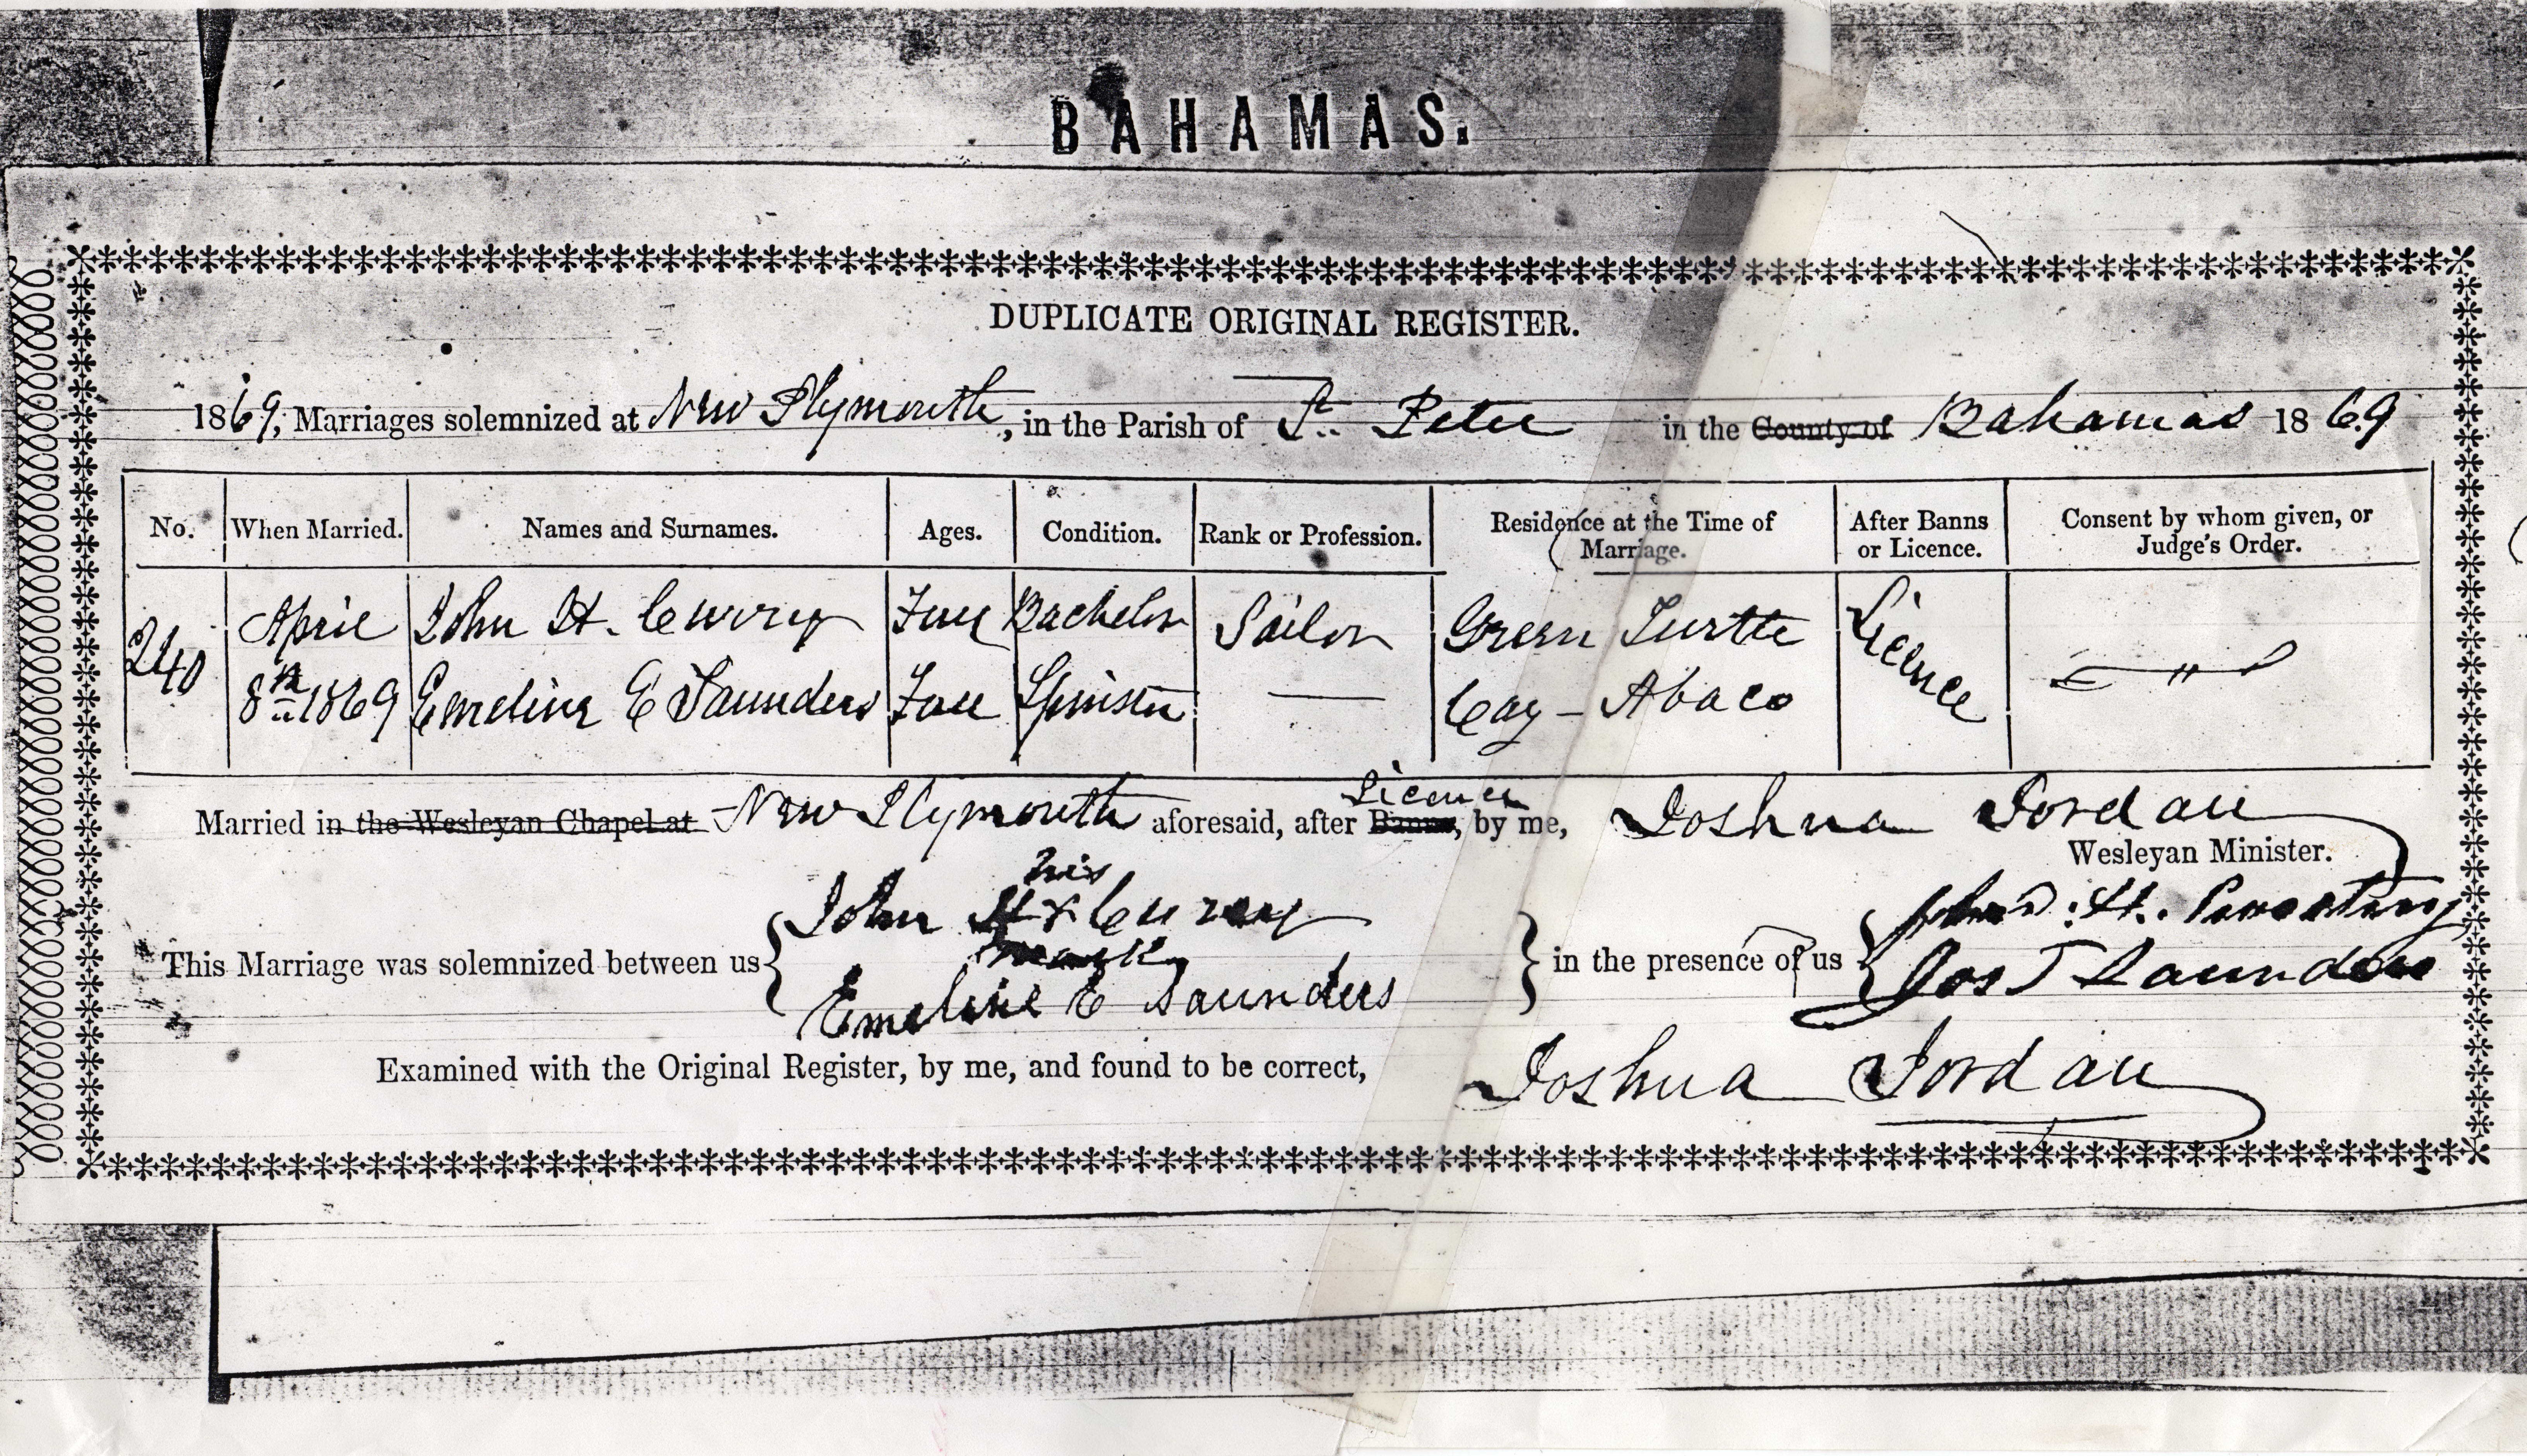 BAHAMAS.
DUPLICATE ORIGINAL REGISTER.
1869, Marriages solemnized at New Plymouth, in the Parish of St. Peter in the County of Bahamas 1869
No. When Married. Names and Surnames. Ages. Condition. Rank or Profession. Residence at the Time of Marriage. After Banns or Licence. Consent by whom given, or Judge's Order.
240 April John H. Curry Full Bachelor Sailor Green Turtle Licence
8th 1869 Emeline E Saunders Full Spinster — Cay - Abaco
Licence
Married in the Wesleyan Chapel at New Plymouth aforesaid, after Banns, by me, Joshua Jordan
Wesleyan Minister.
his
John H x Curry
mark
This Marriage was solemnized between us in the presence of us
Jos T Saunders
Emeline E Saunders
Examined with the Original Register, by me, and found to be correct, Joshua Jordan